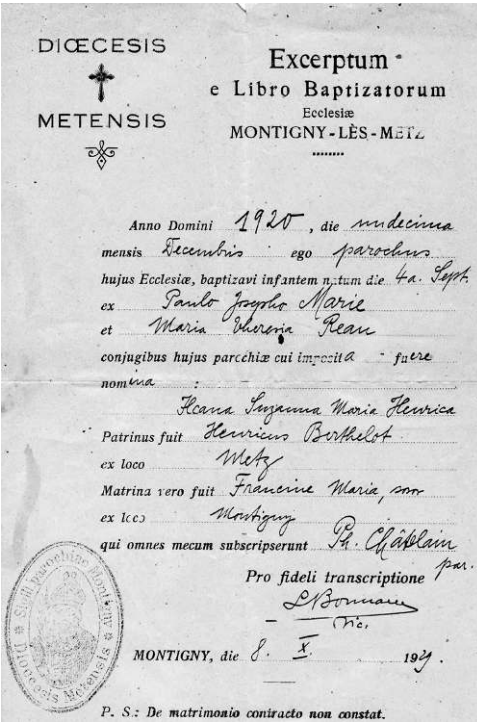 DIŒCESIS
METENSIS
Excerptum
e Libro Baptizatorum
Ecclesiæ
MONTIGNY-LÈS-METZ
Anno Domini 1920, die undecima
mensis Decembris ego parochus
hujus Ecclesiæ, baptizavi infantem natum die 4a. Sept.
ex Paulo Josepho Marie
et Maria Theresia Reau
conjugibus hujus parochiæ cui imposita fuere
nomina :
Suzanna Maria Henrica
Patrinus fuit Henricus Berthelot
ex loco Metz
Matrina vero fuit Francine Maria, soror
ex loco Montigny
qui omnes mecum subscripserunt Ph. Châtelain
par.
Pro fideli transcriptione
Vic.
Sigill. Parochiae Montigny
Diœcesis Metensis
MONTIGNY, die 8. X. 1929.
P. S.: De matrimonio contracto non constat.